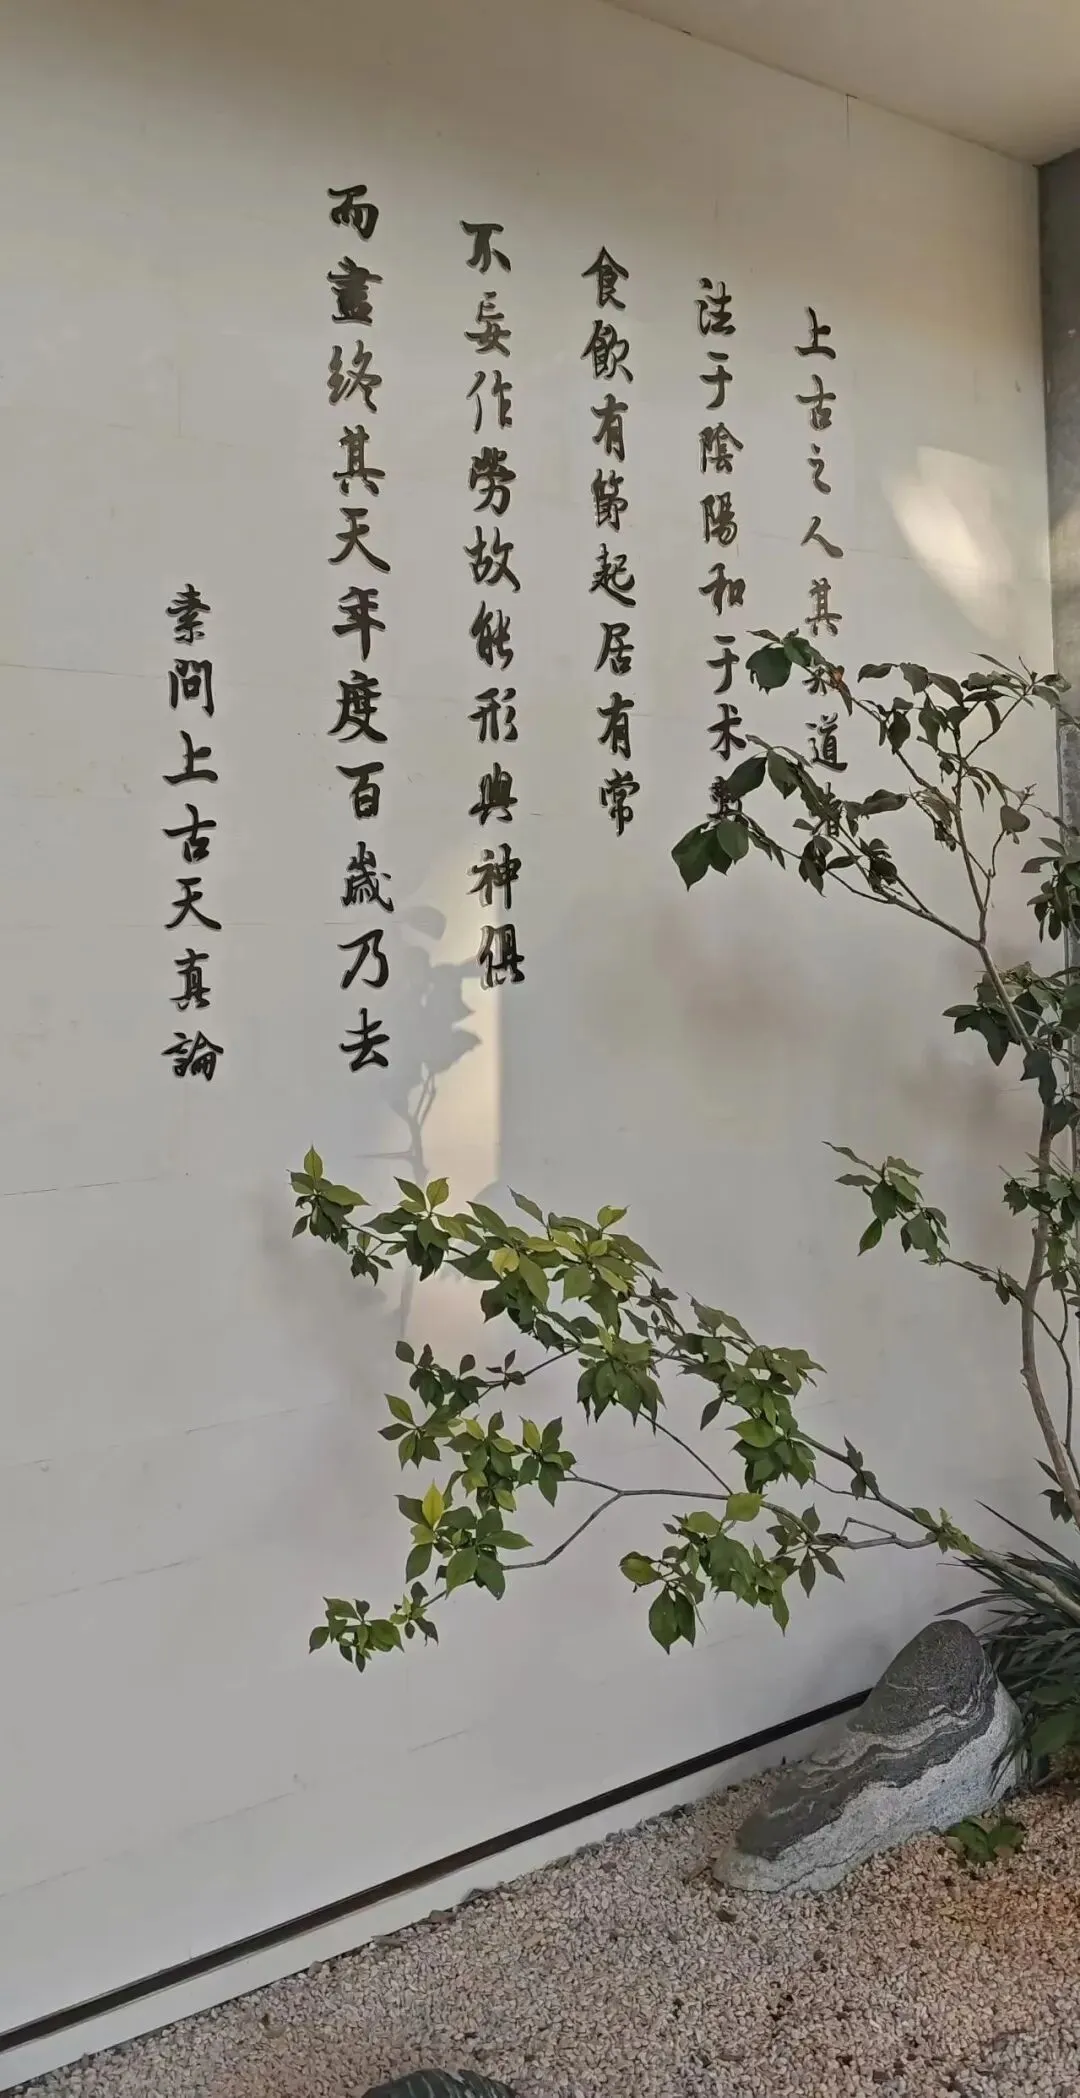 上古之人其知道者
法于陰陽和于术數
食飲有節起居有常
不妄作勞故能形與神俱
而盡終其天年度百歲乃去
素問上古天真論